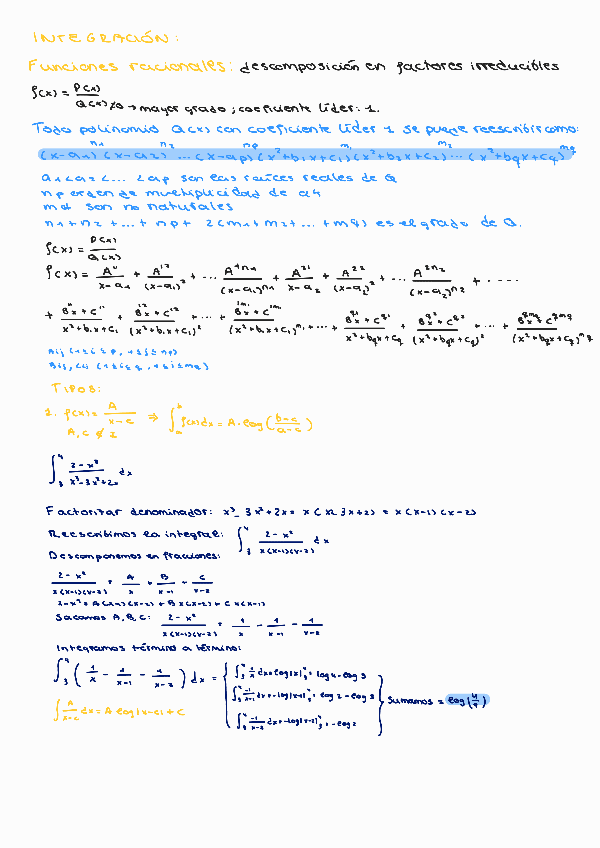 INTEGRACIÓN:
Funciones racionales: descomposición en factores irreducibles
f(x) = P(x) / Q(x)≠0 → mayor grado ; coeficiente líder: 1.
Todo polinomio Q(x) con coeficiente líder 1 se puede reescribir como:
(x-a1)^n1 (x-a2)^n2 ... (x-ap)^np (x²+b1x+c1)^m1 (x²+b2x+c2)^m2 ... (x²+bqx+cq)^mq
a1<a2<... <ap son las raíces reales de Q
np orden de multiplicidad de a
son no naturales
n1+n2+...+np+ 2(m1+m2+...+mq) es el grado de Q.
f(x) = P(x) / Q(x)
f(x) = A¹¹/(x-a1) + A¹²/(x-a1)² + ... A¹ⁿ¹/(x-a1)^n1 + A²¹/(x-a2) + A²²/(x-a2)² + ... A²ⁿ²/(x-a2)^n2 + ....
+ B¹¹x+C¹¹/(x²+b1x+c1) + B¹²x+C¹²/(x²+b1x+c1)² + ... + B¹ᵐ¹x+C¹ᵐ¹/(x²+b1x+c1)^m1 + ... + B^q1x+C^q1/(x²+bqx+cq) + B^q2x+C^q2/(x²+bqx+cq)² + ... + B^qmqx+C^qmq/(x²+bqx+cq)^mq
Aij (1≤i≤p, 1≤j≤np)
Bij, Cij (1≤i≤q, 1≤j≤mq)
TIPOS:
1. f(x) = A/(x-c) ⇒ ∫ f(x)dx = A·log((b-c)/(a-c))
∫₃⁴ (2-x²)/(x³-3x²+2x) dx
Factorizar denominador: x³-3x²+2x = x(x²-3x+2) = x(x-1)(x-2)
Reescribimos la integral: ∫₃⁴ (2-x²)/(x(x-1)(x-2)) dx
Descomponemos en fracciones:
(2-x²)/(x(x-1)(x-2)) = A/x + B/(x-1) + C/(x-2)
Sacamos A, B, C: (2-x²)/(x(x-1)(x-2)) = 1/x - 1/(x-1) - 1/(x-2)
Integramos término a término:
∫₃⁴ (1/x - 1/(x-1) - 1/(x-2)) dx =
∫₃⁴ 1/x dx = log|x|₃⁴ = log 4 - log 3
∫₃⁴ -1/(x-1) dx = -log|x-1|₃⁴ = log 2 - log 3
∫₃⁴ -1/(x-2) dx = -log|x-2|₃⁴ = -log 2
Sumamos =
∫ A/(x-c) dx = A log|x-c| + C